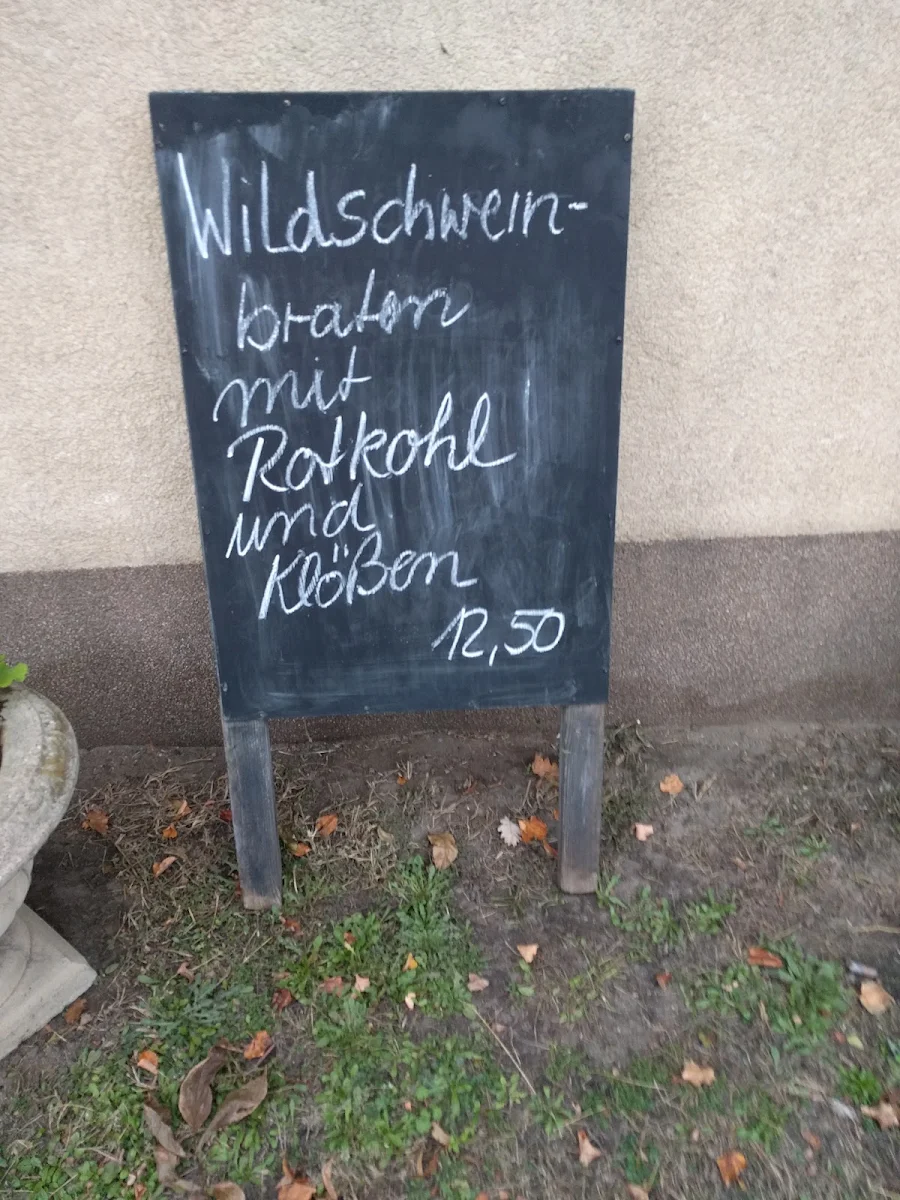 Wildschwein-
braten
mit
Rotkohl
und
Klößen
12,50